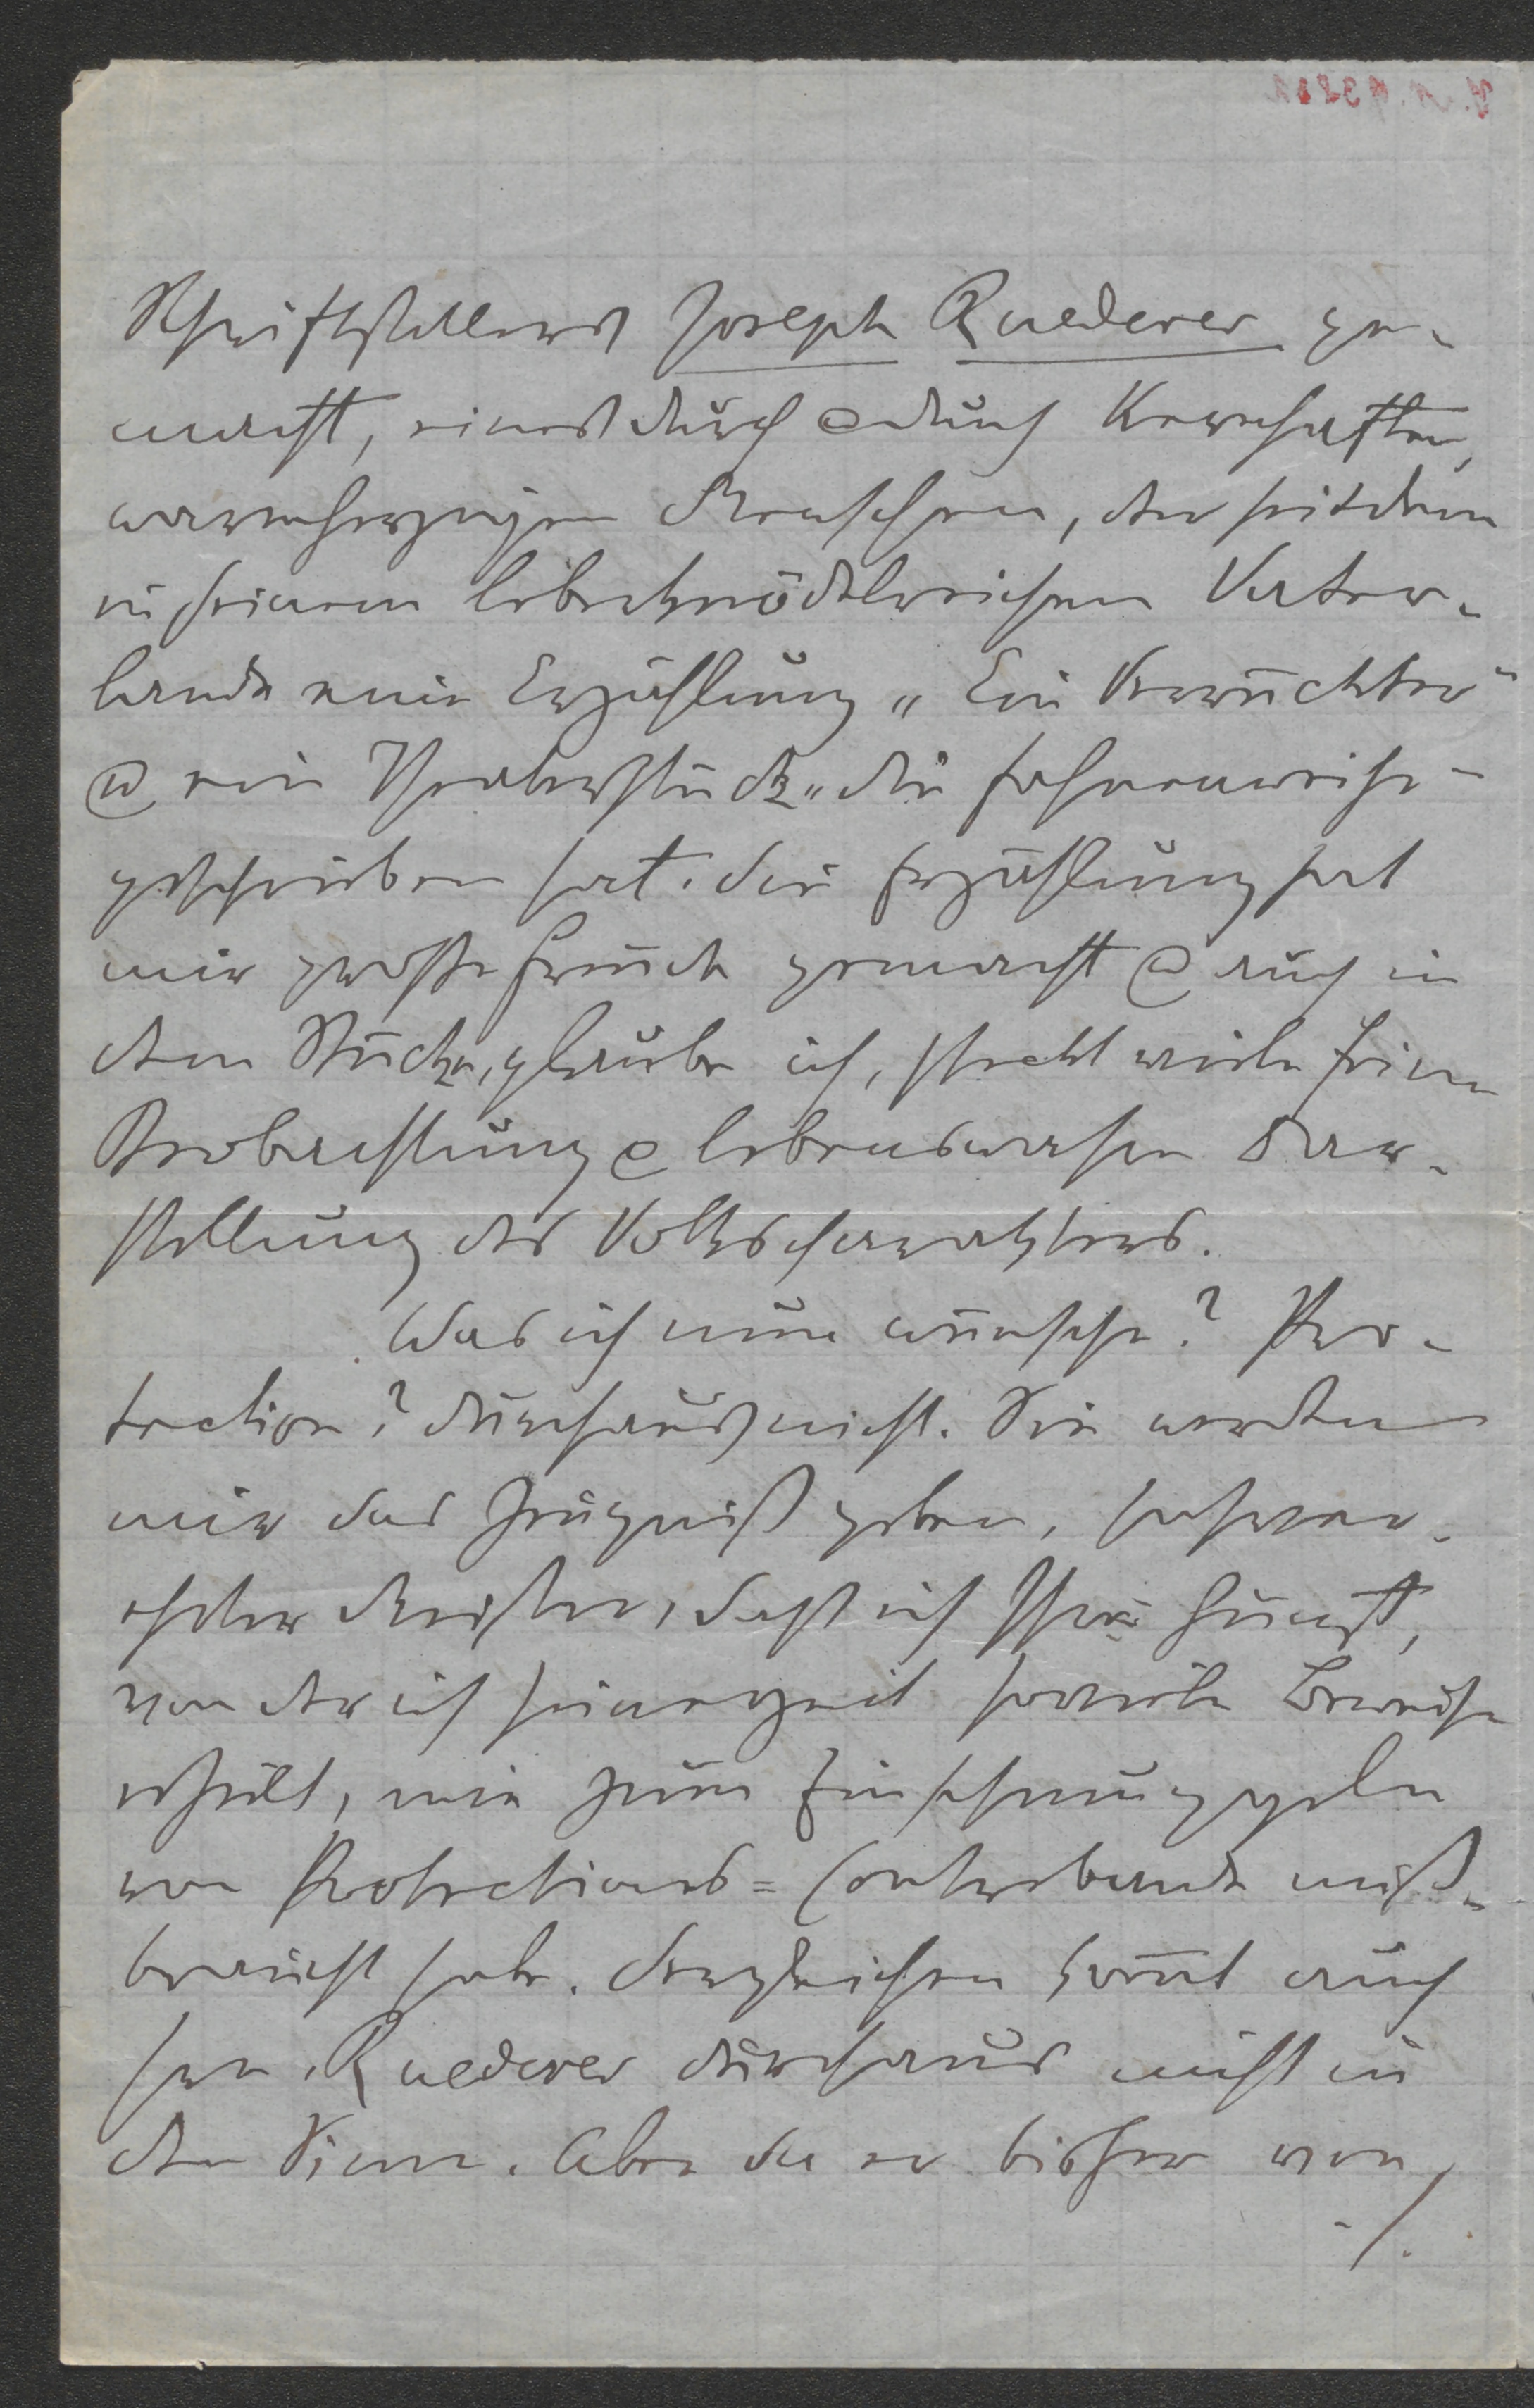 Schriftstellers Joseph Ruederer ge-
macht, eines durch & durch kernhaften,
warmherzigen Menschen, der seitdem
in seinem leberknödelreichen Vater-
lande eine Erzählung „Ein Verrückter"
& ein Theaterstück „die Fahnenweihe"
geschrieben hat. Die Erzählung hat
mir große Freude gemacht & auch in
dem Stücke, glaube ich, steckt viele feine
Beobachtung & lebenswahre Dar-
stellung des Volkscharakters.
Was ich nun wünsche? Pro-
tection? Durchaus nicht. Sie werden
mir das Zeugniß geben, hochver-
ehrter Meister, daß ich Ihre Gunst,
von der ich seinerzeit soviele Beweise
erhielt, nie zum Einschmuggeln
von Protections-Contrebande miß-
braucht habe. Dergleichen kom̅t auch
Hrn. Ruederer durchaus nicht in
den Sinn. Aber da er bisher von
./.